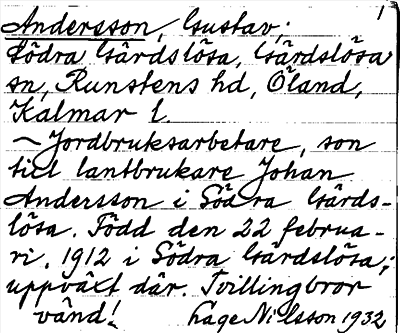 Andersson, Gustav; 1
Södra Gärdslösa, Gärdslösa
sn, Runstens hd, Öland,
Kalmar l.
~ Jordbruksarbetare, son
till lantbrukare Johan
Andersson i Södra Gärds-
lösa. Född den 22 februa-
ri, 1912 i Södra Gärdslösa;
uppväxt där. Tvillingbror
vänd! Lage Nilsson 1932